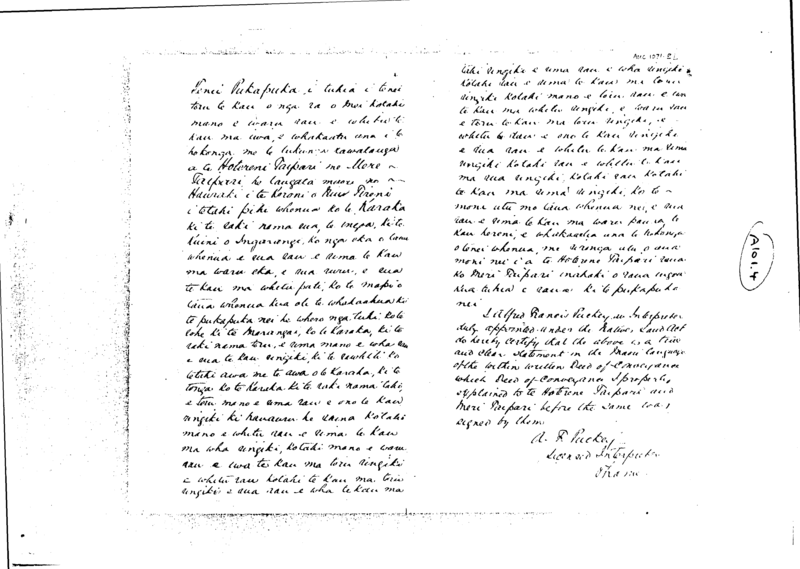 AUC 1071-E2
Tenei Pukapuka, i tuhia i tenei
toru te kau o nga ra o Mei kotahi
mano e waru rau e whitu te
kau ma iwa, e whakaatu ana i te
hokonga me te tukunga rawatanga
a te Hotereni Taipari me Mere
Taipari he tangata maori no
Hauraki i te Koroni o Niu Tireni
i tetahi pihi whenua ko te Karaka
ki te raki nama rua, te ingoa, ki te
Kuini o Ingarangi, ko nga eka o taua
whenua e rua rau e rima te kau
ma waru eka, e rua ruri, e rua
te kau ma whitu pati, ko te mapi o
taua whenua kua oti te whakaahua ki
te pukapuka nei he whero nga tuhi ko te
rohe ki te Marangai, ko te Karaka, ki te
raki nama toru, e rima mano e wha rau
e rua te kau ringiki, ki te rawhiti ko
tetahi awa me te awa o te Karaka, ki te
tonga ko te Karaka ki te raki nama tahi,
e toru mano e rima rau e ono te kau
ringiki ki te hauauru ko raina kotahi
mano e whitu rau e rima te kau
ma wha ringiki, kotahi mano e waru
rau e iwa te kau ma toru ringiki
e whitu rau kotahi te kau ma toru
ringiki e rua rau e wha te kau ma
tahi ringiki e rima rau e wha ringiki
kotahi rau e rima te kau ma toru
ringiki kotahi mano e toru rau e
te kau ma whitu ringiki, e waru rau
e toru te kau ma toru ringiki, e
whitu te rau e ono te kau ringiki
e rua rau e whitu te kau ma rima
ringiki kotahi rau e whitu te kau
ma rua ringiki, kotahi rau kotahi
te kau ma rima ringiki, ko te
moni utu mo taua whenua nei, e rua
rau e rima te kau ma waru pauna, te
kau hereni, e whakaaetia ana te hokonga
o tenei whenua, me nga utu, o aua
moni nei i a te Hotereni Taipari raua
ko Meri Taipari i mahaki o raua ingoa
kua tuhia e raua ki te pukapuka
nei
I Alfred Francis Puckey an Interpreter
duly appointed under the Native Lands Act
do hereby certify that the above is a true
and clear statement in the Maori language
of the within written Deed of Conveyance
which Deed of Conveyance I properly
explained to te Hotereni Taipari and
Meri Taipari before the same was
signed by them
A. F. Puckey
Licensed Interpreter
A101.4